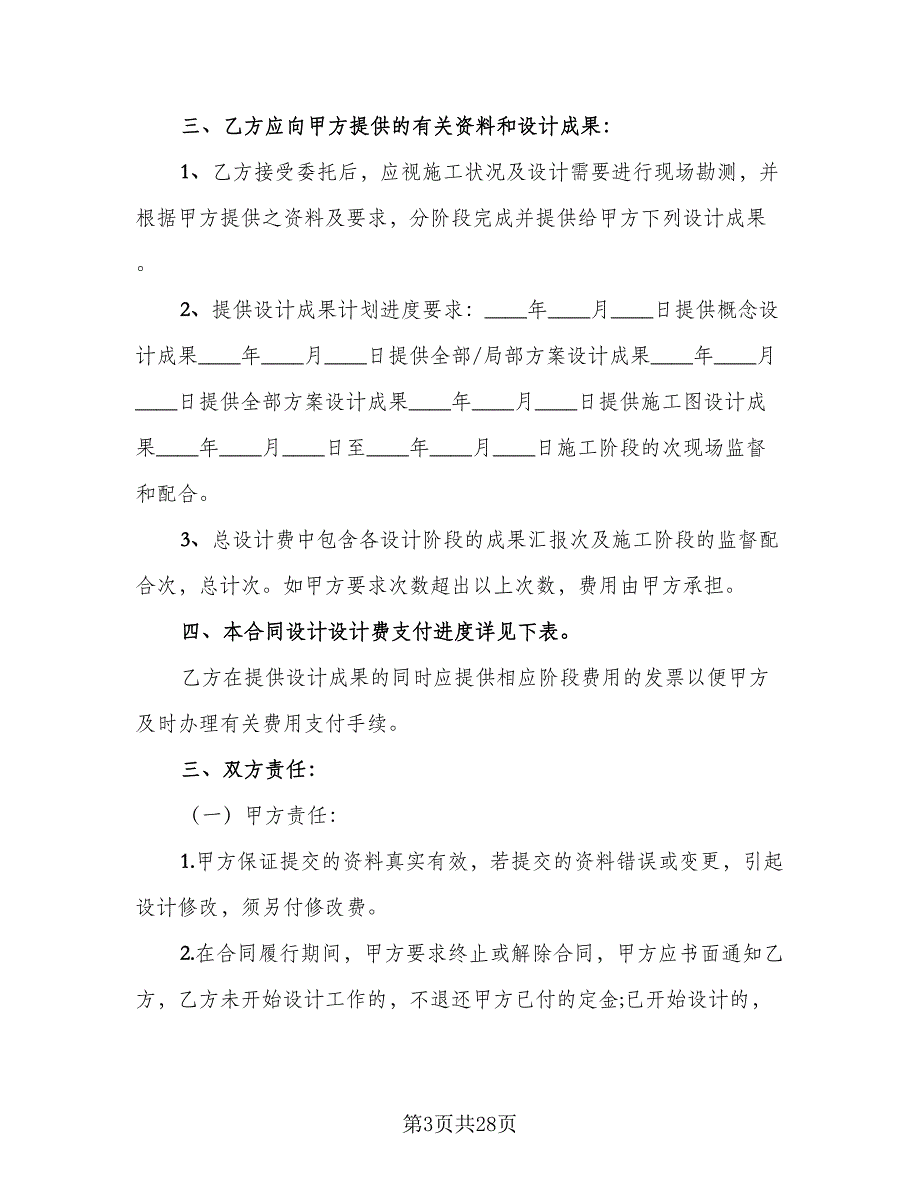 三、乙方应向甲方提供的有关资料和设计成果：
1、乙方接受委托后，应视施工状况及设计需要进行现场勘测，并
根据甲方提供之资料及要求，分阶段完成并提供给甲方下列设计成果
。
2、提供设计成果计划进度要求：____年____月____日提供概念设
计成果____年____月____日提供全部/局部方案设计成果____年____月
____日提供全部方案设计成果____年____月____日提供施工图设计成
果____年____月____日至____年____月____日施工阶段的次现场监督
和配合。
3、总设计费中包含各设计阶段的成果汇报次及施工阶段的监督配
合次，总计次。如甲方要求次数超出以上次数，费用由甲方承担。
四、本合同设计设计费支付进度详见下表。
乙方在提供设计成果的同时应提供相应阶段费用的发票以便甲方
及时办理有关费用支付手续。
三、双方责任：
（一）甲方责任：
1.甲方保证提交的资料真实有效，若提交的资料错误或变更，引起
设计修改，须另付修改费。
2.在合同履行期间，甲方要求终止或解除合同，甲方应书面通知乙
方，乙方未开始设计工作的，不退还甲方已付的定金;已开始设计的，
第3页共28页